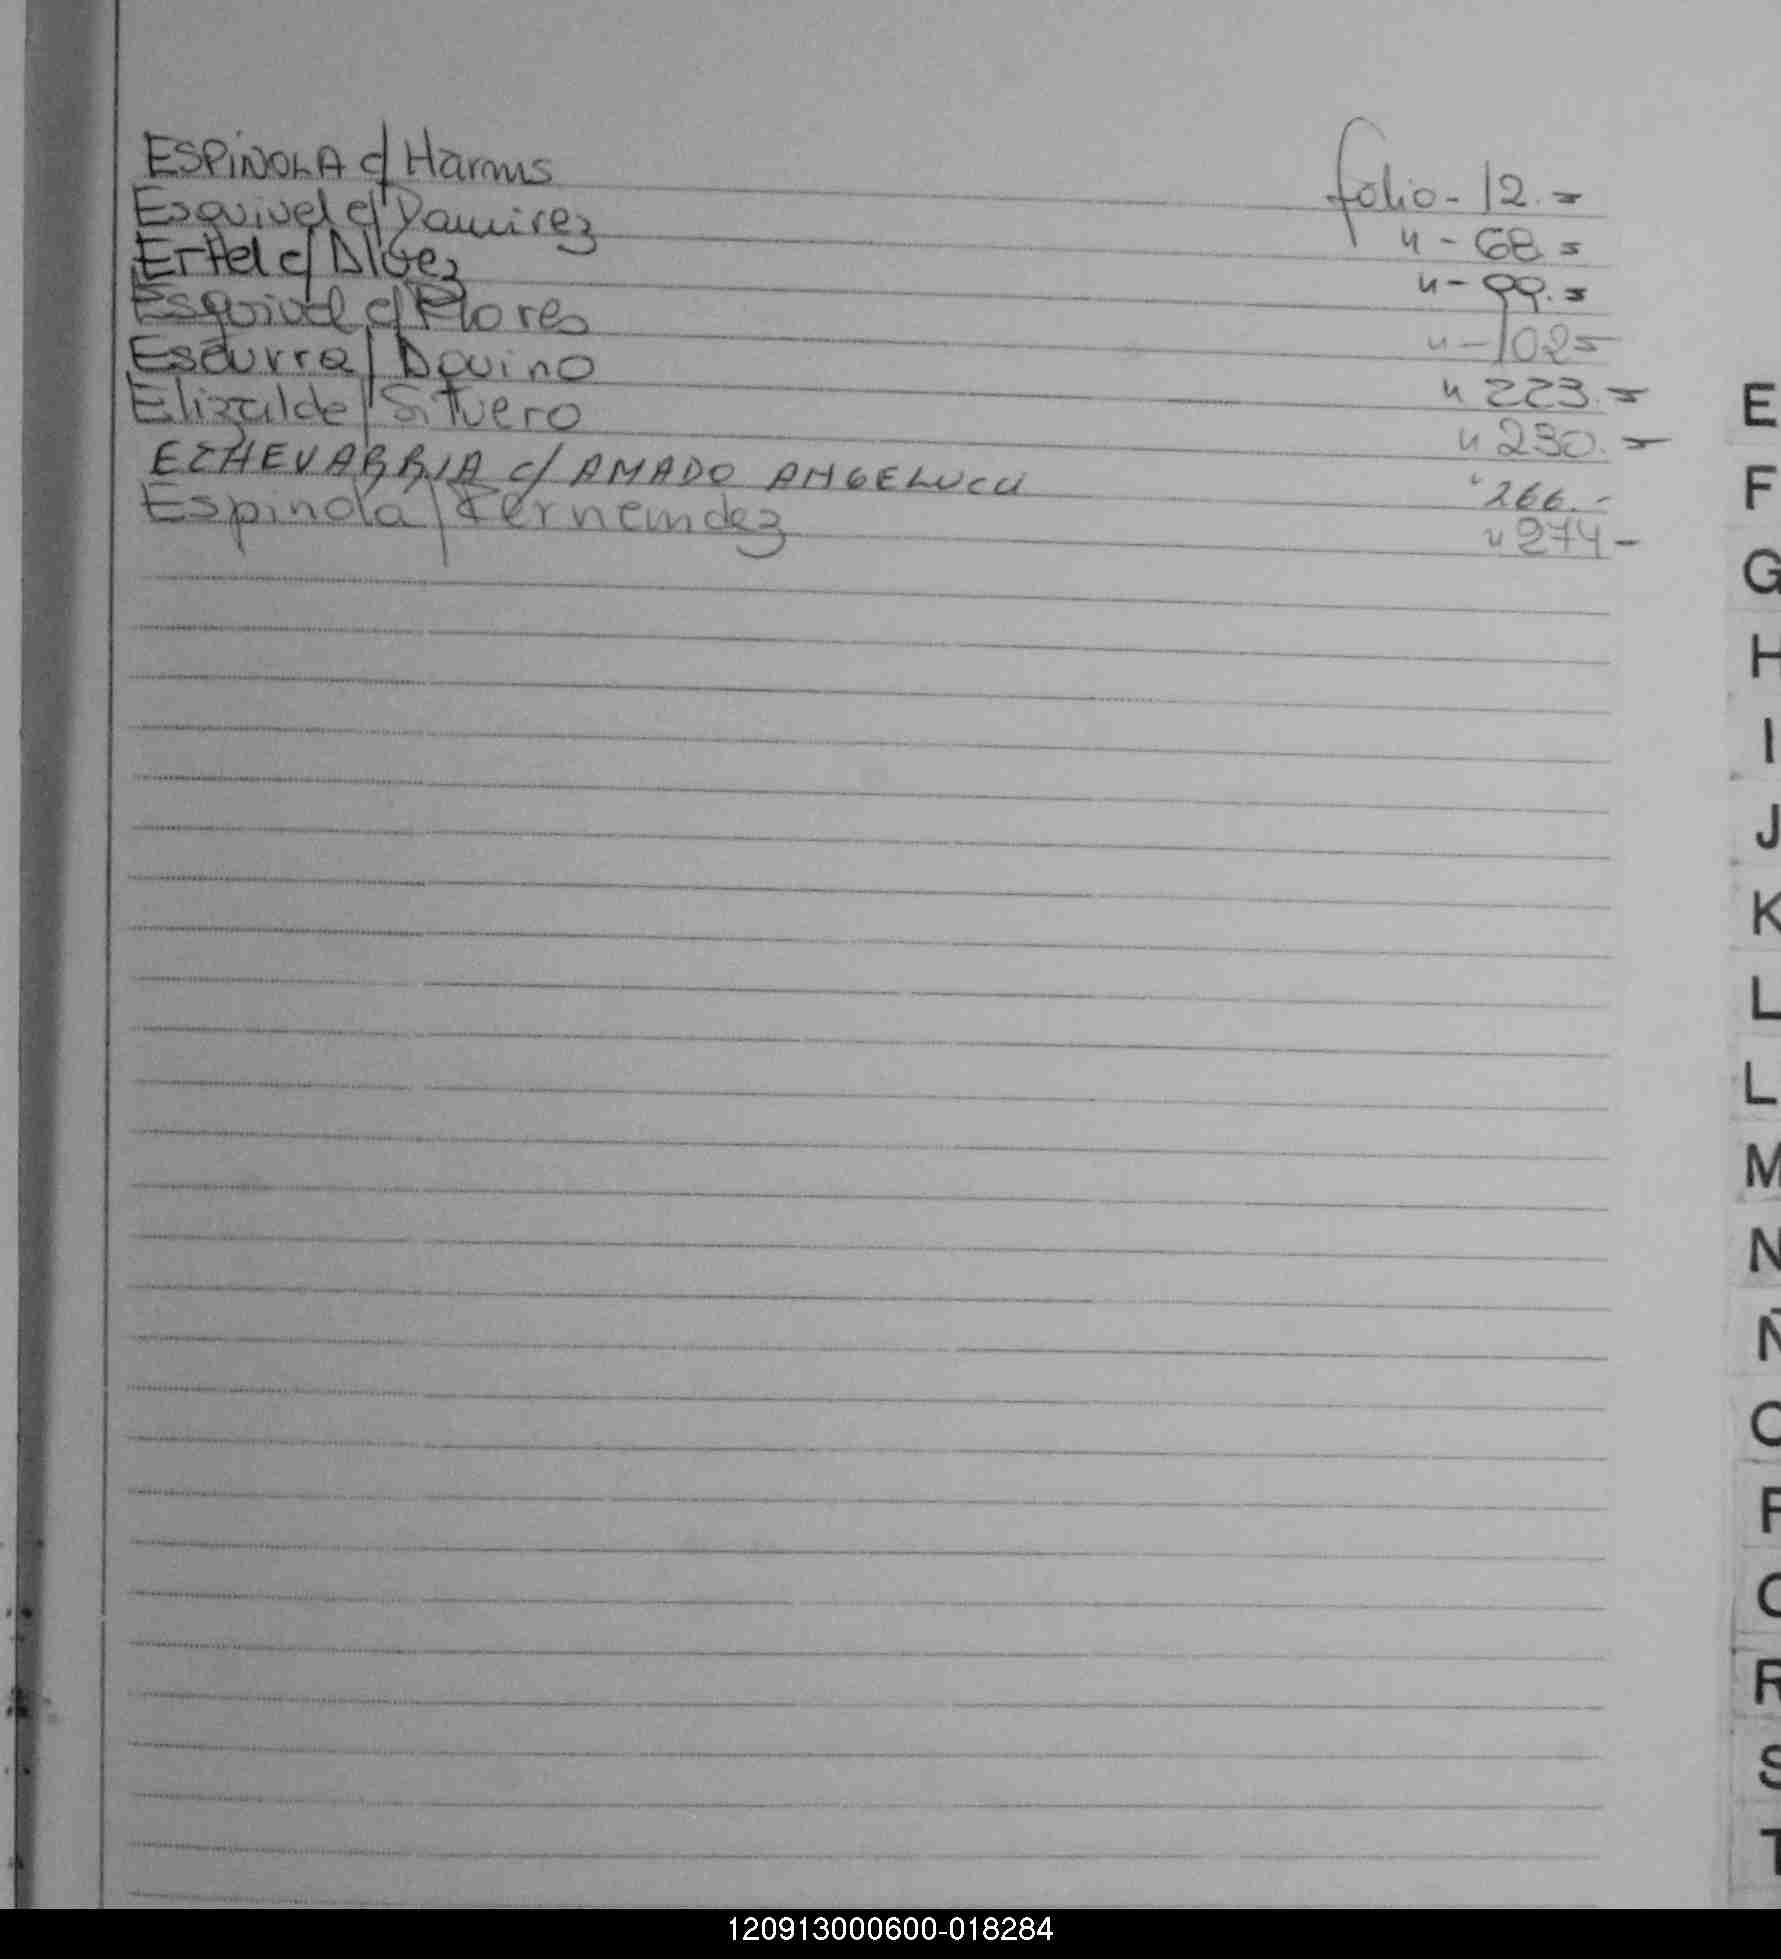 ESPINOLA c/ Harms folio - 12.=
Esquivel c/ Ramirez " - 68.=
Ertel c/ " - 99.=
Esquivel c/ Flores " - 102=
Escurra / Dquino " 223.=
Elizalde / Situero " 230.=
ECHEVARRIA c/ AMADO ANGELUCCI " 266.-
Espinola / Fernendez " 274-
E
F
G
H
I
J
K
L
L
M
N
Ñ
O
P
Q
R
S
T
120913000600-018284